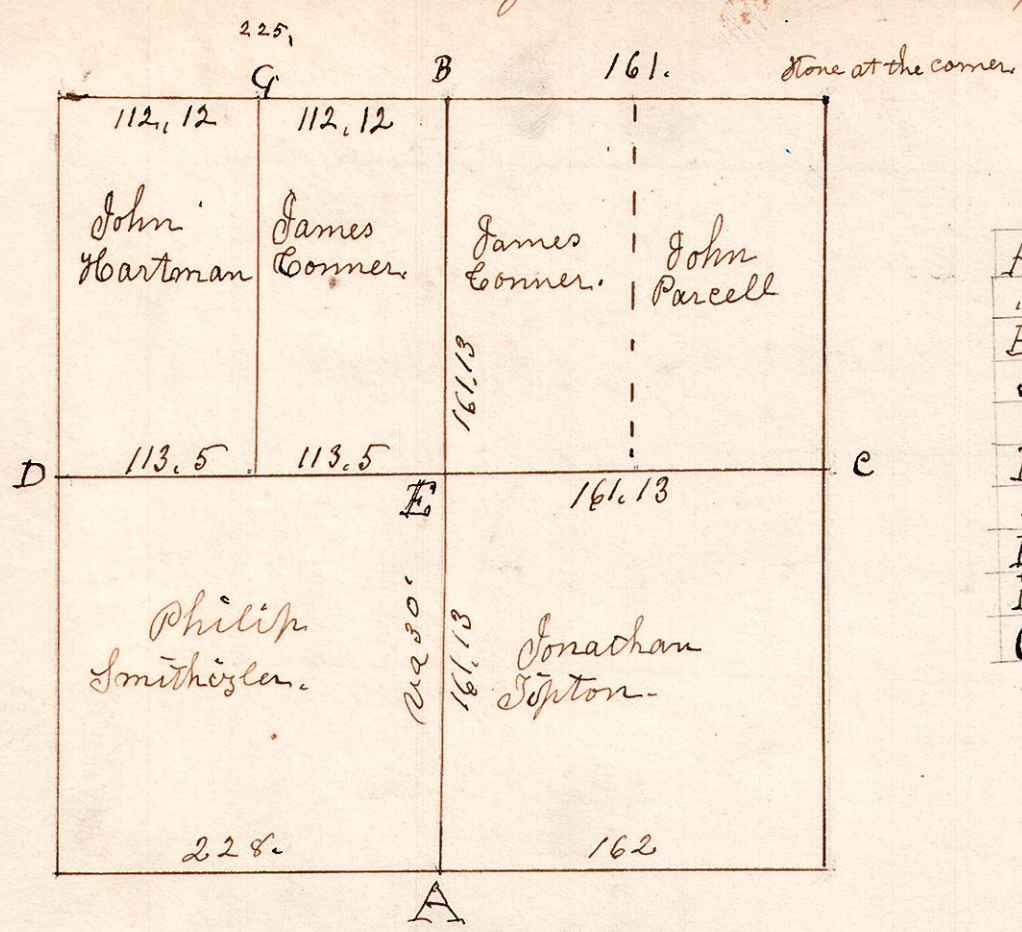 225,
G
B
161.
Stone at the corner
112,12
112,12
John
Hartman
James
Conner.
James
Conner.
John
Parcell
161.13
D
113.5
113.5
E
161.13
C
Philip
Va 30'
161.13
Jonathan
Tipton.
228.
162
A